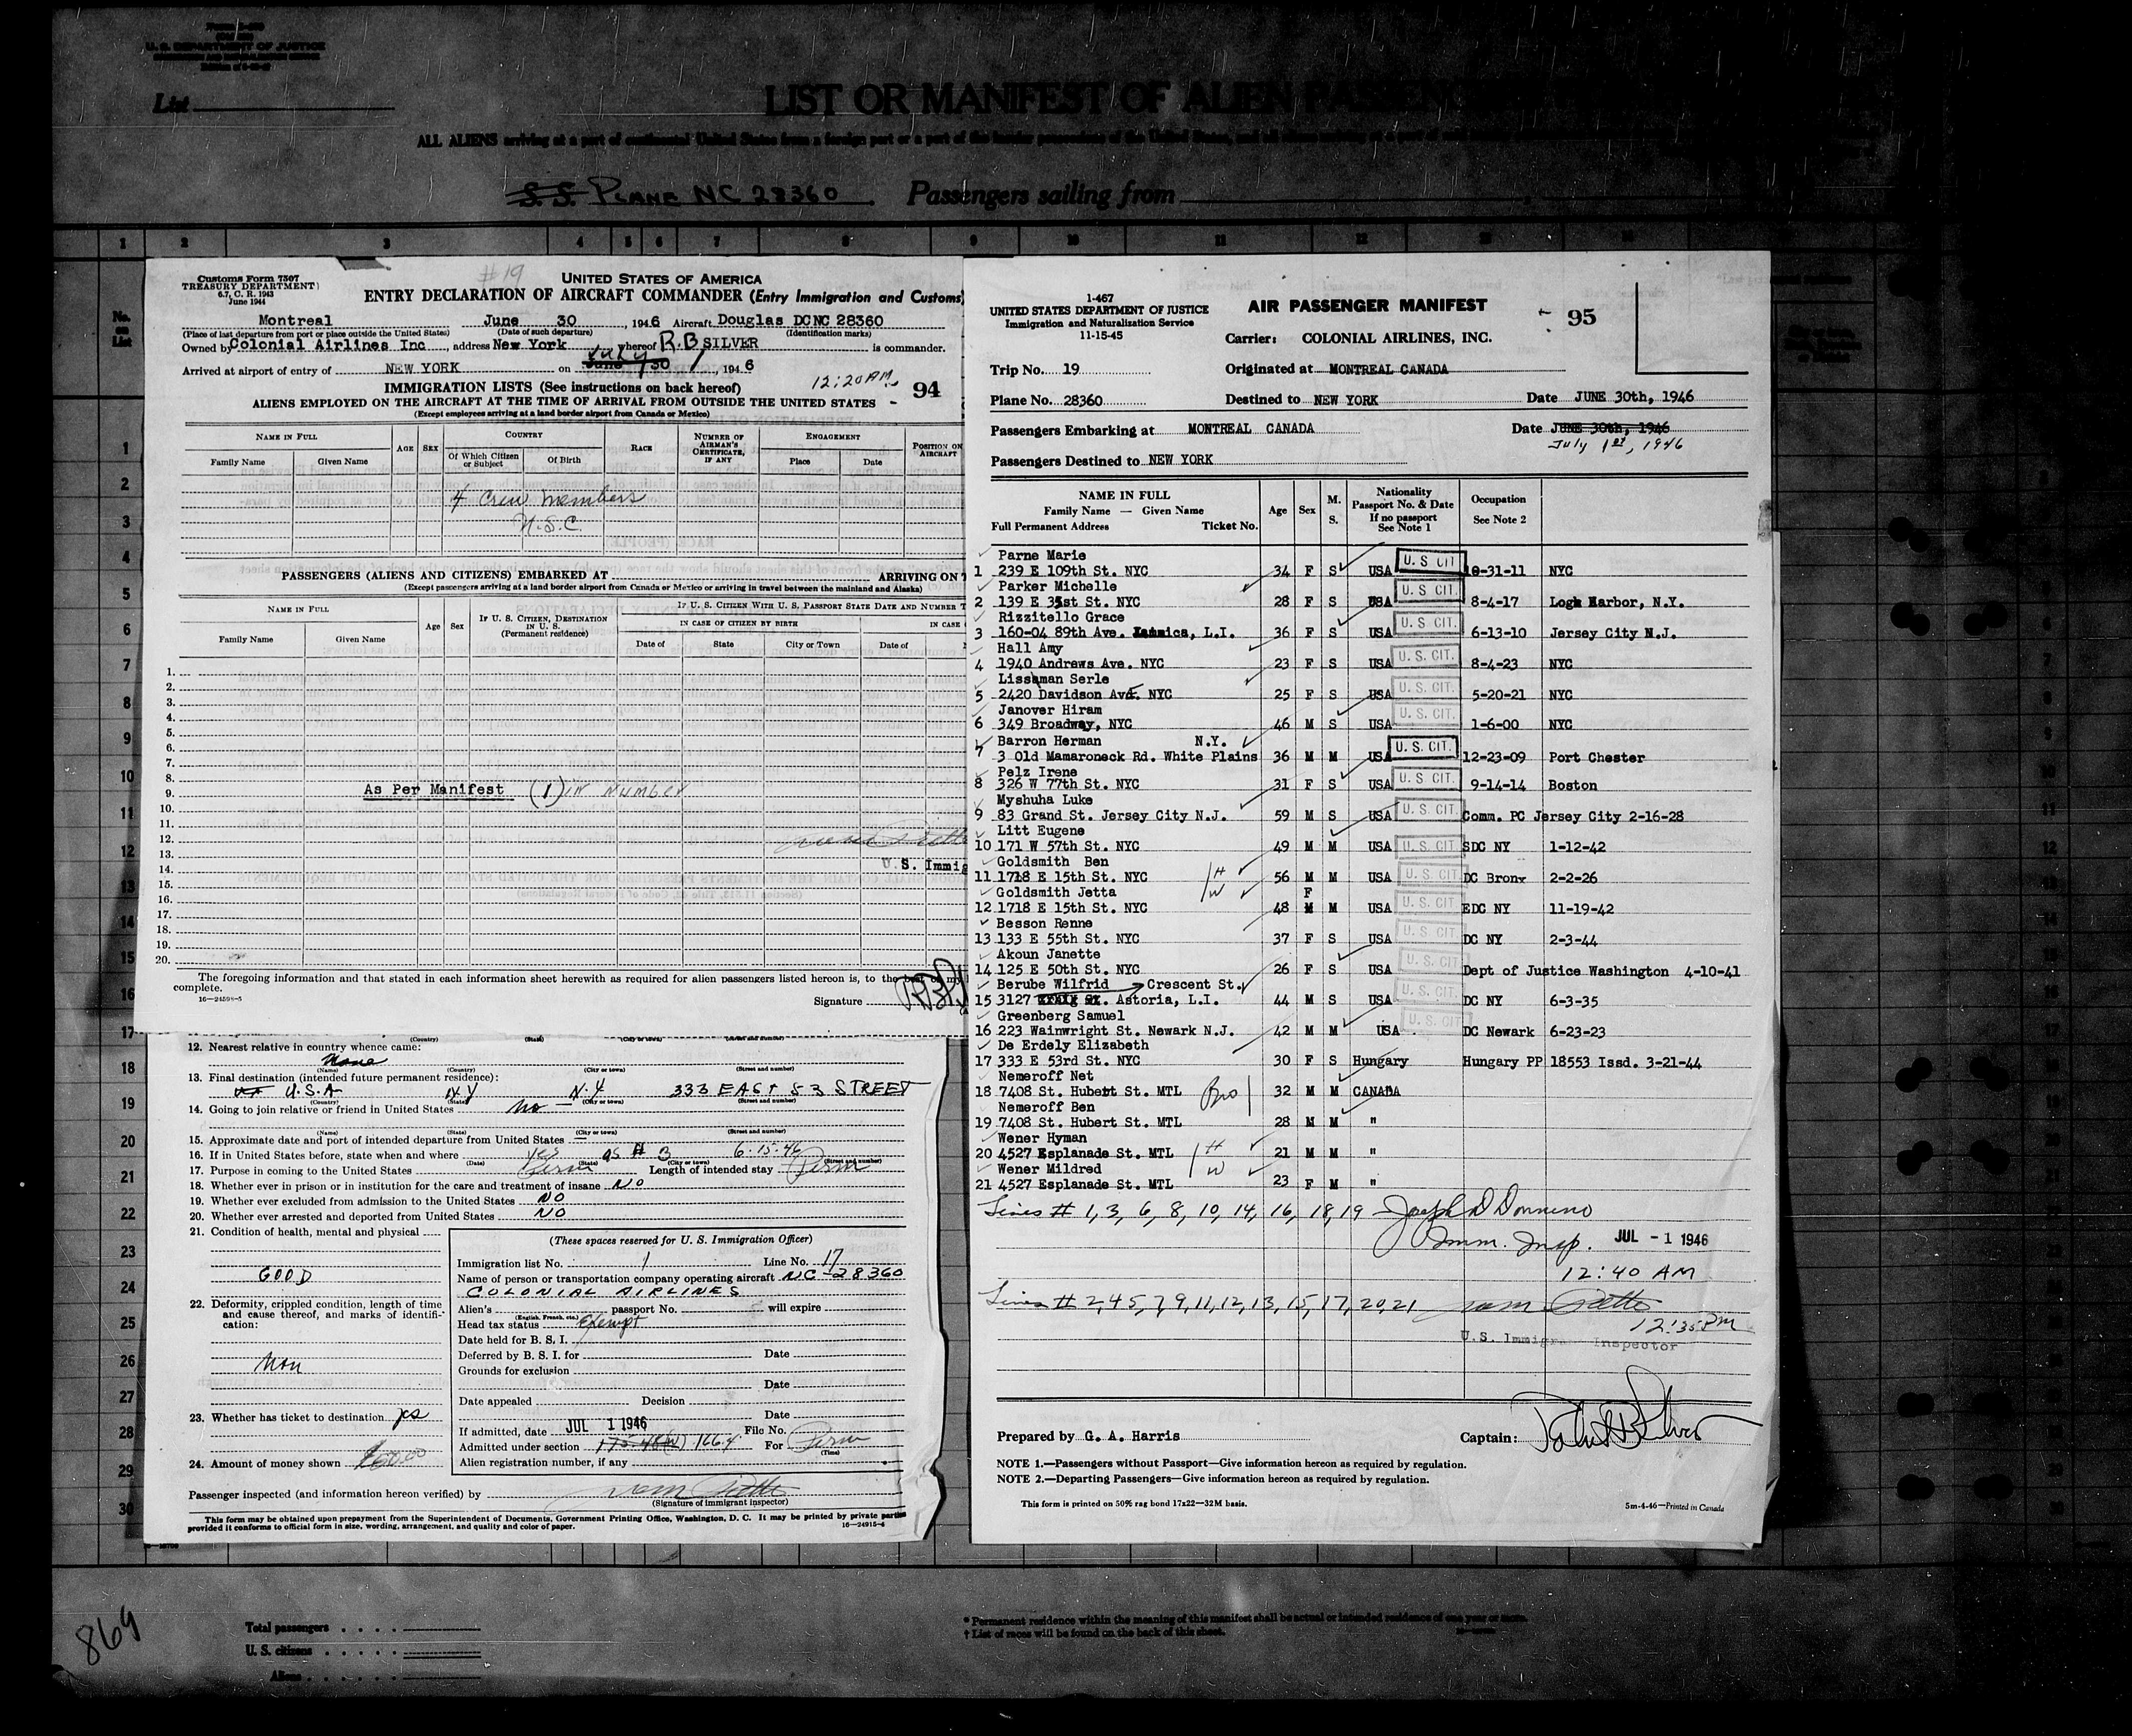 U. S. DEPARTMENT OF JUSTICE
List
LIST OR MANIFEST OF ALIEN
ALL ALIENS arriving at a port of continental United States from a foreign port or a port of the insular possessions of the United States, and all aliens arriving at a port of
S.S. PLANE NC 28360 Passengers sailing from
1 2 3 4 5 6 7 8 9 10 11 12
No. on List
Customs Form 7507
TREASURY DEPARTMENT
6.7, C. R. 1943
June 1944
#19
UNITED STATES OF AMERICA
ENTRY DECLARATION OF AIRCRAFT COMMANDER (Entry Immigration and Customs)
Montreal June 30, 1946 Aircraft Douglas DC NC 28360
(Place of last departure from port or place outside the United States) (Date of such departure) (Identification marks)
Owned by Colonial Airlines Inc, address New York whereof R.B SILVER is commander.
Arrived at airport of entry of NEW YORK on June 30 July 1, 1946
12:20AM
IMMIGRATION LISTS (See instructions on back hereof)
94
ALIENS EMPLOYED ON THE AIRCRAFT AT THE TIME OF ARRIVAL FROM OUTSIDE THE UNITED STATES
(Except employees arriving at a land border airport from Canada or Mexico)
NAME IN FULL AGE SEX COUNTRY RACE NUMBER OF AIRMAN'S CERTIFICATE, IF ANY ENGAGEMENT POSITION ON AIRCRAFT
Family Name Given Name Of Which Citizen or Subject Of Birth Place Date
4 Crew Members
U.S.C.
PASSENGERS (ALIENS AND CITIZENS) EMBARKED AT ARRIVING ON
(Except passengers arriving at a land border airport from Canada or Mexico or arriving in travel between the mainland and Alaska)
NAME IN FULL Age Sex IF U. S. CITIZEN, DESTINATION IN U. S. (Permanent residence) IF U. S. CITIZEN WITH U. S. PASSPORT STATE DATE AND NUMBER
Family Name Given Name IN CASE OF CITIZEN BY BIRTH IN CASE
Date of State City or Town Date of
1.
2.
3.
4.
5.
6.
7.
8.
9. As Per Manifest (1) IN NUMBER
10.
11.
12.
13.
14. U.S. Immig
15.
16.
17.
18.
19.
20.
The foregoing information and that stated in each information sheet herewith as required for alien passengers listed hereon is, to the best of my
complete.
16—24598-5
Signature
12. Nearest relative in country whence came:
None
(Name) (Country) (City or town) (Street and number)
13. Final destination (intended future permanent residence):
U.S.A NY N.Y 333 EAST 53 STREET
(Country) (State) (City or town) (Street and number)
14. Going to join relative or friend in United States no
(Name) (State) (City or town) (Street and number)
15. Approximate date and port of intended departure from United States
16. If in United States before, state when and where yes as # 3 6-15-46
(Date) (State) (City or town) (Street and number)
17. Purpose in coming to the United States Perm Length of intended stay Perm
18. Whether ever in prison or in institution for the care and treatment of insane NO
19. Whether ever excluded from admission to the United States NO
20. Whether ever arrested and deported from United States NO
21. Condition of health, mental and physical
GOOD
22. Deformity, crippled condition, length of time and cause thereof, and marks of identification:
Non
23. Whether has ticket to destination yes
24. Amount of money shown
(These spaces reserved for U. S. Immigration Officer)
Immigration list No. 1 Line No. 17
Name of person or transportation company operating aircraft NC-28360
COLONIAL AIRLINES
Alien's passport No. will expire
(English, French, etc.)
Head tax status Exempt
Date held for B. S. I.
Deferred by B. S. I. for Date
Grounds for exclusion
Date
Date appealed Decision
Date
If admitted, date JUL 1 1946 File No.
Admitted under section 175.46(a) 166.4 For Perm
(Time)
Alien registration number, if any
Passenger inspected (and information hereon verified) by
(Signature of immigrant inspector)
This form may be obtained upon prepayment from the Superintendent of Documents, Government Printing Office, Washington, D. C. It may be printed by private parties
provided it conforms to official form in size, wording, arrangement, and quality and color of paper.
16—24915-4
1-467
UNITED STATES DEPARTMENT OF JUSTICE
Immigration and Naturalization Service
11-15-45
AIR PASSENGER MANIFEST
95
Carrier: COLONIAL AIRLINES, INC.
Trip No. 19 Originated at MONTREAL CANADA
Plane No. 28360 Destined to NEW YORK Date JUNE 30th, 1946
Passengers Embarking at MONTREAL CANADA Date JUNE 30th, 1946
July 1st, 1946
Passengers Destined to NEW YORK
NAME IN FULL
Family Name — Given Name
Full Permanent Address Ticket No.
Age Sex M. S. Nationality Passport No. & Date If no passport See Note 1 Occupation See Note 2
Parne Marie
1 239 E 109th St. NYC 34 F S USA U. S CIT 10-31-11 NYC
Parker Michelle
2 139 E 31st St. NYC 28 F S USA U. S CIT. 8-4-17 Logk Harbor, N.Y.
Rizzitello Grace
3 160-04 89th Ave. Jamaica, L.I. 36 F S USA U. S CIT. 6-13-10 Jersey City N.J.
Hall Amy
4 1940 Andrews Ave. NYC 23 F S USA U. S. CIT. 8-4-23 NYC
Lissaman Serle
5 2420 Davidson Ave. NYC 25 F S USA U. S. CIT. 5-20-21 NYC
Janover Hiram
6 349 Broadway, NYC 46 M S USA U. S. CIT. 1-6-00 NYC
Barron Herman N.Y.
7 3 Old Mamaroneck Rd. White Plains 36 M M USA U. S. CIT. 12-23-09 Port Chester
Pelz Irene
8 326 W 77th St. NYC 31 F S USA U. S CIT. 9-14-14 Boston
Myshuha Luke
9 83 Grand St. Jersey City N.J. 59 M S USA U. S. CIT. Comm. PC Jersey City 2-16-28
Litt Eugene
10 171 W 57th St. NYC 49 M M USA U. S. CIT SDC NY 1-12-42
Goldsmith Ben
11 1718 E 15th St. NYC H 56 M M USA U. S. CIT DC Bronx 2-2-26
Goldsmith Jetta W F
12 1718 E 15th St. NYC 48 M M USA U. S. CIT EDC NY 11-19-42
Besson Renne
13 133 E 55th St. NYC 37 F S USA U. S. CIT DC NY 2-3-44
Akoun Janette
14 125 E 50th St. NYC 26 F S USA U. S. CIT Dept of Justice Washington 4-10-41
Berube Wilfrid Crescent St.
15 3127 Astoria, L.I. 44 M S USA U. S. CIT. DC NY 6-3-35
Greenberg Samuel
16 223 Wainwright St. Newark N.J. 42 M M USA U. S. CIT DC Newark 6-23-23
De Erdely Elizabeth
17 333 E 53rd St. NYC 30 F S Hungary Hungary PP 18553 Issd. 3-21-44
Nemeroff Net
18 7408 St. Hubert St. MTL Bro 32 M M CANADA
Nemeroff Ben
19 7408 St. Hubert St. MTL 28 M M "
Wener Hyman
20 4527 Esplanade St. MTL H 21 M M "
Wener Mildred W
21 4527 Esplanade St. MTL 23 F M "
Lines # 1, 3, 6, 8, 10, 14, 16, 18, 19 Joseph D Donnino
Imm. Insp. JUL - 1 1946
12:40 AM
Lines # 2, 4 5, 7, 9, 11, 12, 13, 15, 17, 20, 21
12:35 PM
U.S. Immigra Inspector
Prepared by G. A. Harris Captain:
NOTE 1.—Passengers without Passport—Give information hereon as required by regulation.
NOTE 2.—Departing Passengers—Give information hereon as required by regulation.
This form is printed on 50% rag bond 17x22—32M basis. 5m-4-46—Printed in Canada
869
Total passengers
U. S. citizens
Aliens
* Permanent residence within the meaning of this manifest shall be actual or intended residence of one year or more.
† List of races will be found on the back of this sheet.